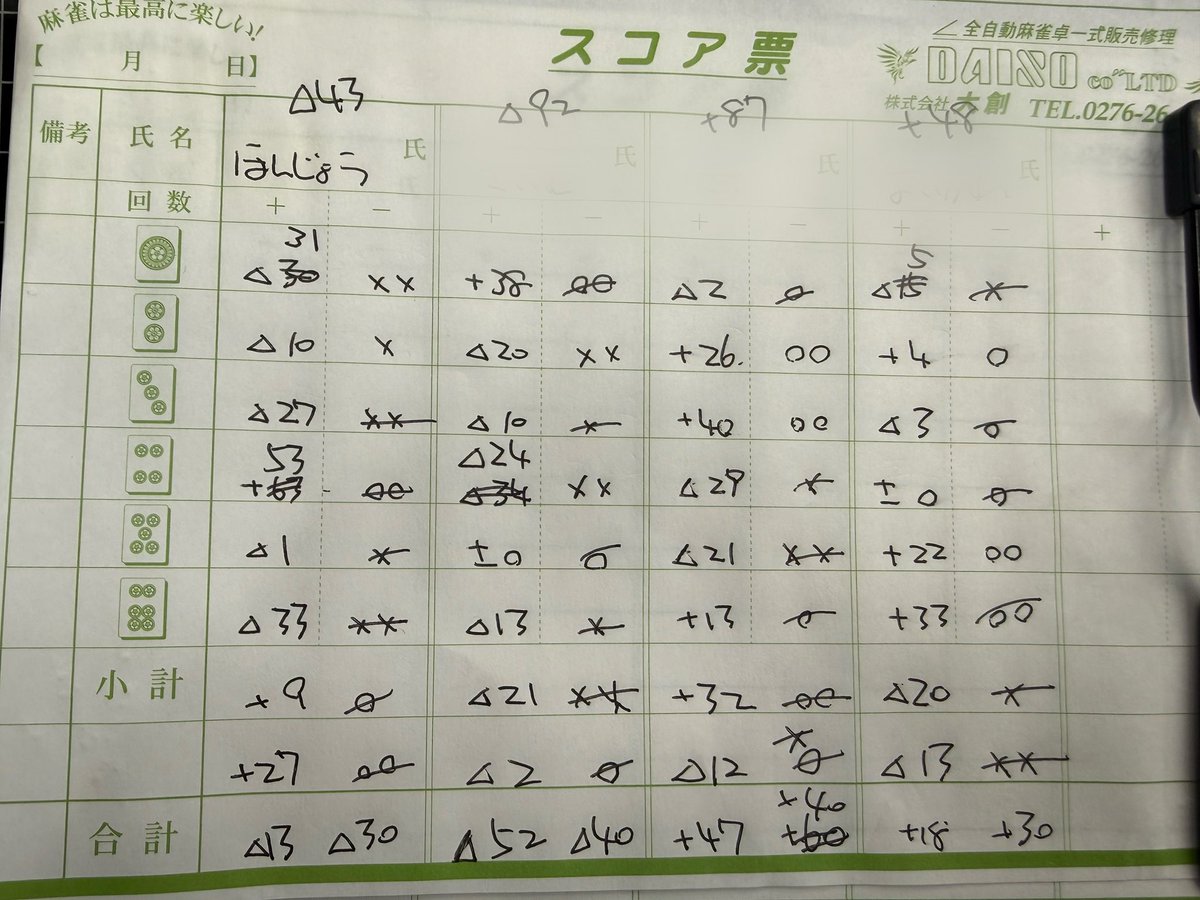 麻雀は最高に楽しい!
【 月 日】
スコア票
全自動麻雀卓一式販売修理
DAISO CO."LTD
株式会社 大創 TEL.0276-26
△43 △92 +87 +48
備考 氏名 ほんじょう 氏 氏 氏 氏
回数 + − + − + − + − +
31 5
△30 ×× +38 ○○ △2 ○ △15 ×
△10 × △20 ×× +26. ○○ +4 ○
△27 ×× △10 × +40 ○○ △3 ○
53 △24
+63 ○○ △34 ×× △29 × ±0 ○
△1 × ±0 ○ △21 ×× +22 ○○
△33 ×× △13 × +13 ○ +33 ○○
小計 +9 ○ △21 ×× +32 ○○ △20 ×
×
+27 ○○ △2 ○ △12 ○ △13 ××
+40
合計 △13 △30 △52 △40 +47 +60 +18 +30